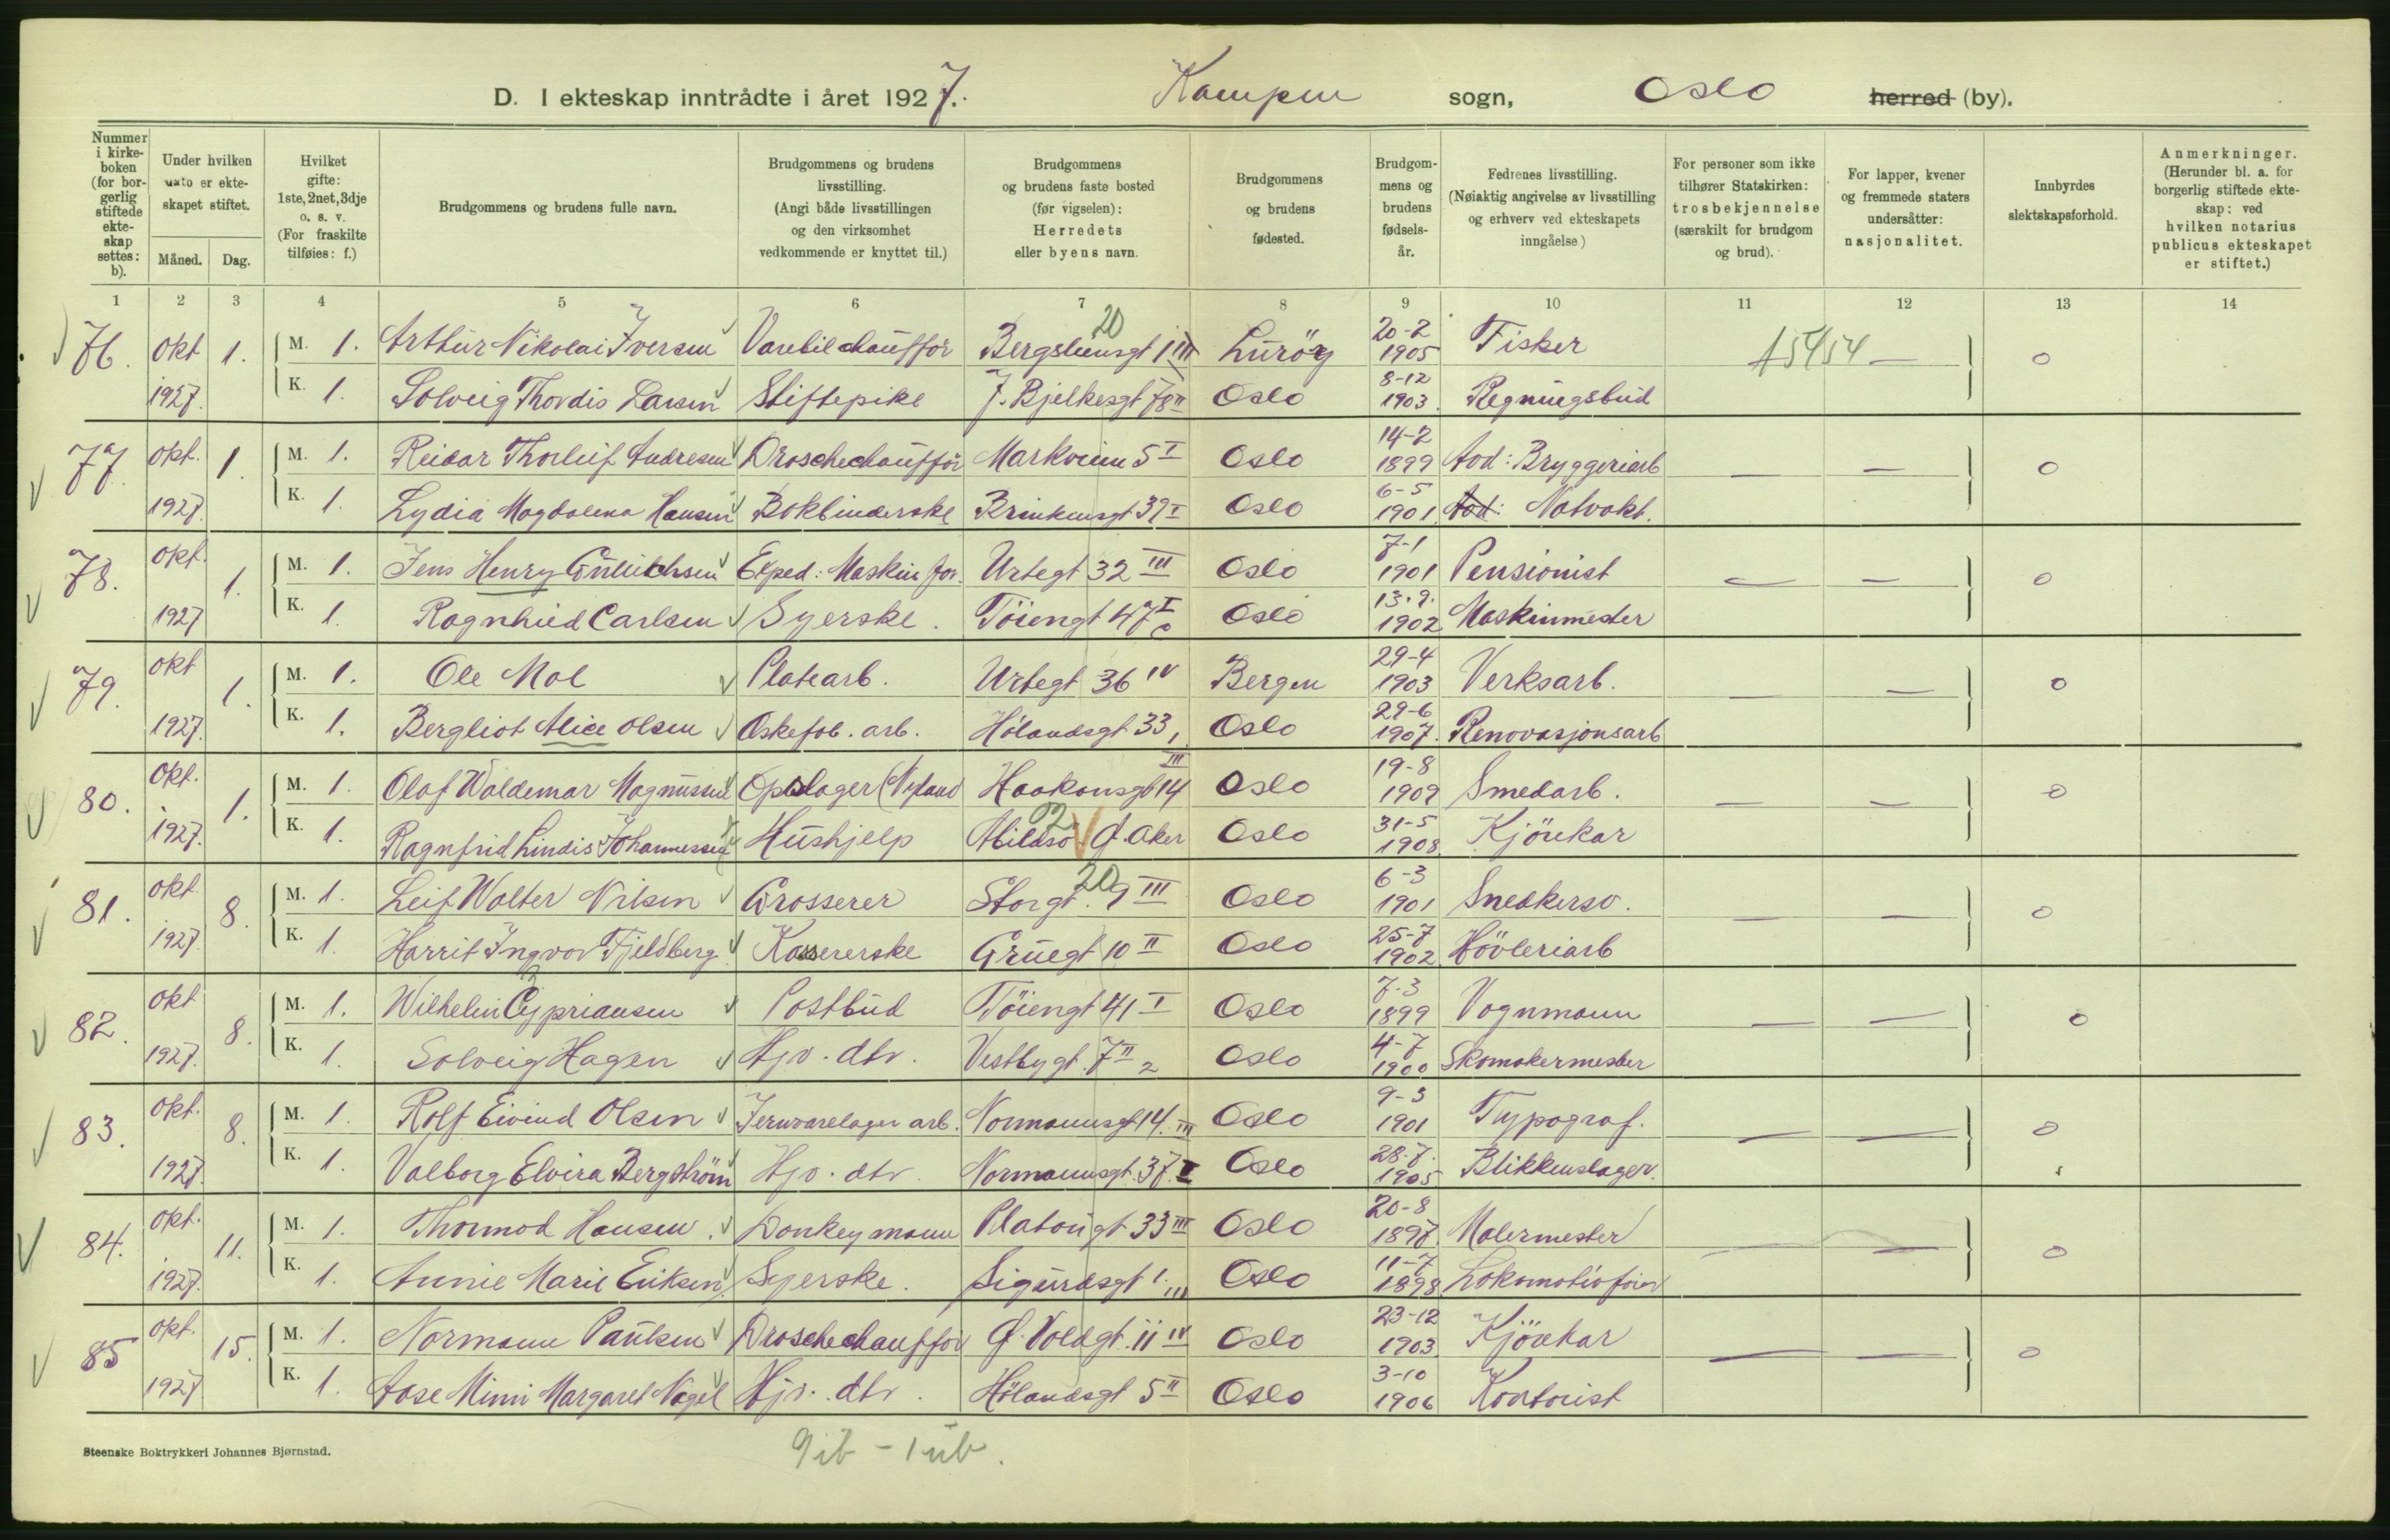 D. I ekteskap inntrådte i året 1927. Kampen sogn, Oslo herred (by).
Nummer i kirkeboken (for borgerlig stiftede ekteskap settes: b).
Under hvilken dato er ekteskapet stiftet.
Måned. Dag.
Hvilket gifte: 1ste, 2net, 3dje o. s. v. (For fraskilte tilføies: f.)
Brudgommens og brudens fulle navn.
Brudgommens og brudens livsstilling. (Angi både livsstillingen og den virksomhet vedkommende er knyttet til.)
Brudgommens og brudens faste bosted (før vigselen): Herredets eller byens navn.
Brudgommens og brudens fødested.
Brudgommens og brudens fødselsår.
Fedrenes livsstilling. (Nøiaktig angivelse av livsstilling og erhverv ved ekteskapets inngåelse)
For personer som ikke tilhører Statskirken: trosbekjennelse (særskilt for brudgom og brud).
For lapper, kvener og fremmede staters undersåtter: nasjonalitet.
Innbyrdes slektskapsforhold.
Anmerkninger. (Herunder bl. a. for borgerlig stiftede ekteskap: ved hvilken notarius publicus ekteskapet er stiftet.)
1 2 3 4 5 6 7 8 9 10 11 12 13 14
76. Okt 1. M. 1. Arthur Nikolai Iversen Varebilchaufför Bergsliensgt 1 III 20 Luröy 20-2 1905 Fisker 15454 — 0
1927. K. 1. Solveig Thordis Larsen Stiftepike J. Bjelkesgt 78 II Oslo 8-12 1903. Regningsbud
77. Okt. 1. M. 1. Reidar Thorleif Andresen Droschechaufför Markveien 5 I Oslo 14-2 1899 Aod: Bryggeriarb — — 0
1927. K. 1. Lydia Magdalena Hansen Bokbinderske Brinkensgt 39 I Oslo 6-5 1901. Aod: Natvakt.
78. Okt. 1. M. 1. Jens Henry Gulichsen Exped: Maskinfor. Urtegt 32 III Oslo 7-1 1901 Pensionist — — 0
1927 K. 1. Ragnhild Carlsen Syerske. Töiengt 47 I Oslo 13.9. 1902 Maskinmester
79. Okt 1. M. 1. Ole Mol Platearb. Urtegt 36 IV Bergen 29-4 1903 Verksarb. — — 0
1927. K. 1. Bergliot Alice Olsen Eskefab. arb. Hölandsgt 33, Oslo 29-6 1907. Renovasjonsarb
80. Okt. 1. M. 1. Olaf Waldemar Magnussen Opslager (Nyland Haakonsgt 14 III Oslo 19-8 1909 Smedarb. — — 0
1927. K. 1. Ragnfrid Lindis Johannessen Hushjelp Abildsö Ö. Aker 02 Oslo 31-5 1908. Kjörekar
81. Okt. 8. M. 1. Leif Walter Nilsen Grosserer Storgt. 9 III 20 Oslo 6-3 1901 Snedkersv. — — 0
1927. K. 1. Harrit Ingvor Fjeldberg Kassererske Grüegt 10 II Oslo 25-7 1902. Hövleriarb
82. Okt 8. M. 1. Wilhelm Cypriansen Postbud Töiengt 41 I Oslo 7.3 1899 Vognmann — — 0
1927. K. 1. Solveig Hagen Hjv. dtr. Vestbygt. 7 II 2 Oslo 4-7 1900 Skomakermester
83. Okt. 8. M. 1. Rolf Eivind Olsen Jernvarelager arb. Normannsgt 14. III Oslo 9-3 1901 Typograf. — — 0
1927. K. 1. Valborg Elvira Bergström Hjv. dtr. Normannsgt. 37. I Oslo 28-7. 1905 Blikkenslager.
84. Okt. 11. M. 1. Thormod Hansen. Donkeymann Platougt 33 III Oslo 20-8 1897. Malermester — — 0
1927. K. 1. Annie Marie Eriksen Syerske. Sigurdsgt 1. III Oslo 11-7 1898. Lokomotivförer
85 Okt. 15. M. 1. Normann Paulsen Droschechaufför Ö. Voldgt. 11 IV Oslo 23-12 1903. Kjörekar — — 0
1927 K. 1. Aase Mimi Margaret Nagel Hjv. dtr. Hölandsgt 5 II Oslo 3-10 1906 Kontorist
Steenske Boktrykkeri Johannes Bjørnstad.
9ib - 1ub.